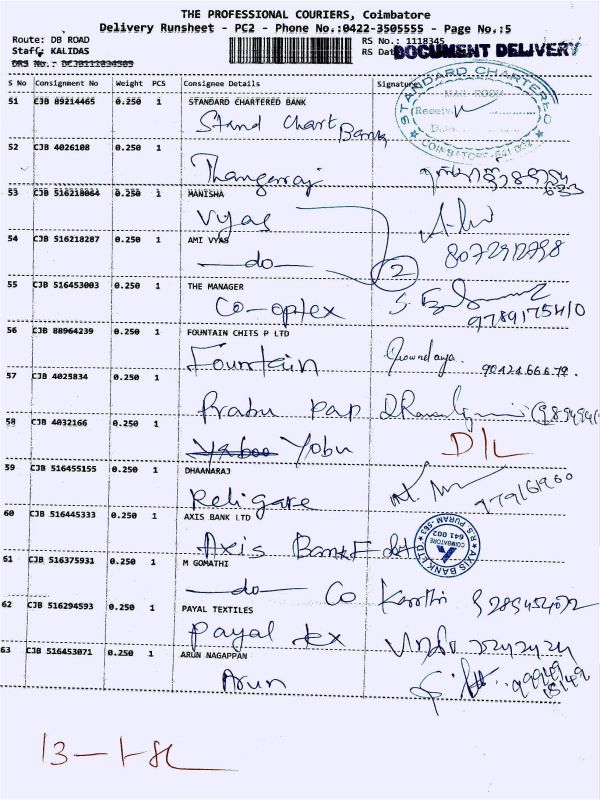 THE PROFESSIONAL COURIERS, Coimbatore
Delivery Runsheet - PC2 - Phone No.:0422-3505555 - Page No.:5
Route: DB ROAD RS No.: 1118345
Staff: KALIDAS RS Dat DOCUMENT DELIVERY
DRS No.: DCJB111834505
S No Consignment No Weight PCS Consignee Details Signature
51 CJB 89214465 0.250 1 STANDARD CHARTERED BANK
Stand Chart Bank
STANDARD CHARTERED
MAIL ROOM
Receive
COIMBATORE-641 002
52 CJB 4026108 0.250 1
Thangaraj
53 CJB 516218064 0.250 1 MANISHA
Vyas
54 CJB 516218287 0.250 1 AMI VYAS
do 2
8072912798
55 CJB 516453003 0.250 1 THE MANAGER
Co-optex
9789175410
56 CJB 88964239 0.250 1 FOUNTAIN CHITS P LTD
Fountain
57 CJB 4025834 0.250 1
Prabu pap
58 CJB 4032166 0.250 1
Yobu D/L
59 CJB 516455155 0.250 1 DHAANARAJ
Religare
60 CJB 516445333 0.250 1 AXIS BANK LTD
Axis Bank
AXIS BANK LTD
R.S PURAM
COIMBATORE
641 002
61 CJB 516375931 0.250 1 M GOMATHI
do Co
62 CJB 516294593 0.250 1 PAYAL TEXTILES
Payal tex
63 CJB 516453071 0.250 1 ARUN NAGAPPAN
Arun